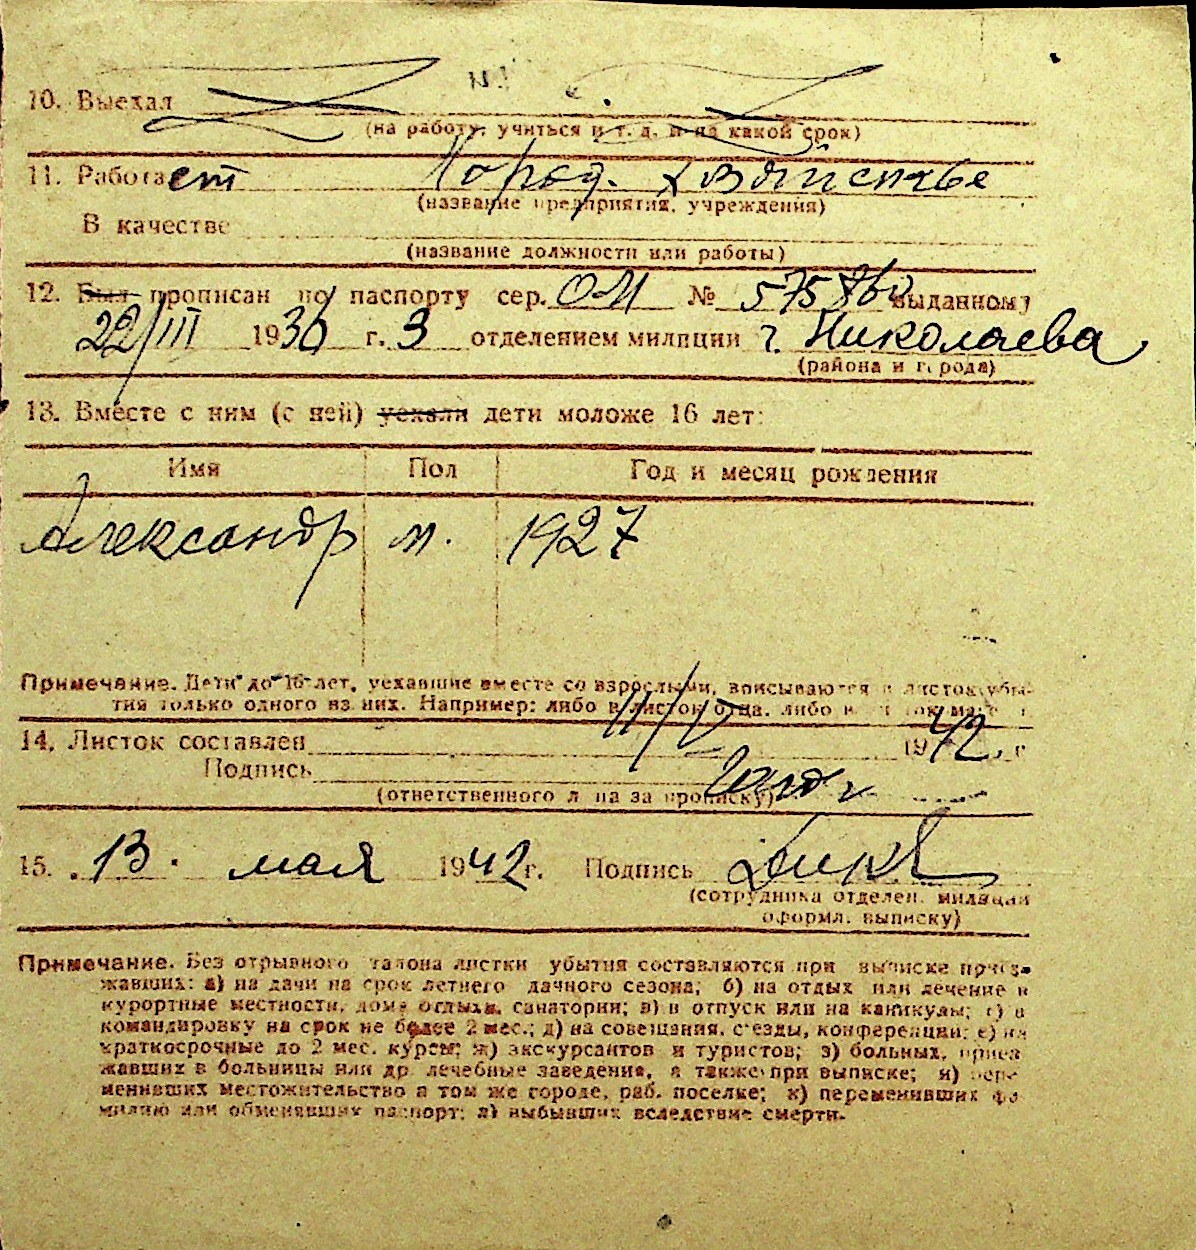 10. Выехал
(на работу, учиться и т. д. и на какой срок)
11. Работает Город. хозяйство
(название предприятия, учреждения)
В качестве
(название должности или работы)
12. Был прописан по паспорту сер. ОМ № 575860 выданному
22/III 1936 г. 3 отделением милиции г. Николаева
(района и города)
13. Вместе с ним (с ней) уехали дети моложе 16 лет:
Имя Пол Год и месяц рождения
Александр м. 1927
Примечание. Дети до 16 лет, уехавшие вместе со взрослыми, вписываются в листок убы-
тия только одного из них. Например: либо в листок отца, либо в листок матери
14. Листок составлен 11/V 1942 г.
Подпись
(ответственного лица за прописку)
15. 13. мая 1942 г. Подпись
(сотрудника отделен. милиции
оформл. выписку)
Примечание. Без отрывного талона листки убытия составляются при выписке приез-
жавших: а) на дачи на срок летнего дачного сезона; б) на отдых или лечение в
курортные местности, дома отдыха, санатории; в) в отпуск или на каникулы; г) в
командировку на срок не более 2 мес.; д) на совещания, съезды, конференции; е) на
краткосрочные до 2 мес. курсы; ж) экскурсантов и туристов; з) больных, приез-
жавших в больницы или др лечебные заведения, а также при выписке; и) пере-
менивших местожительство в том же городе, раб. поселке; к) переменивших фа-
милию или обменявших паспорт; л) выбывших вследствие смерти.